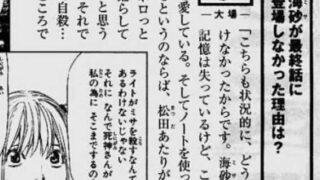 海砂が最終話に
登場しなかった理由は?
大場
「こちらも状況的に、どう
けなかったからです。海砂
記憶は失っているけど、こ
愛している。そしてノートを使っ
というのならば、松田あたりが
ょっと
らして
と思う
それで
自殺…
ころで
ライトがミサを殺すなんて
あるわけないじゃない
それになんで死神さんが
私の為に そこまでするの